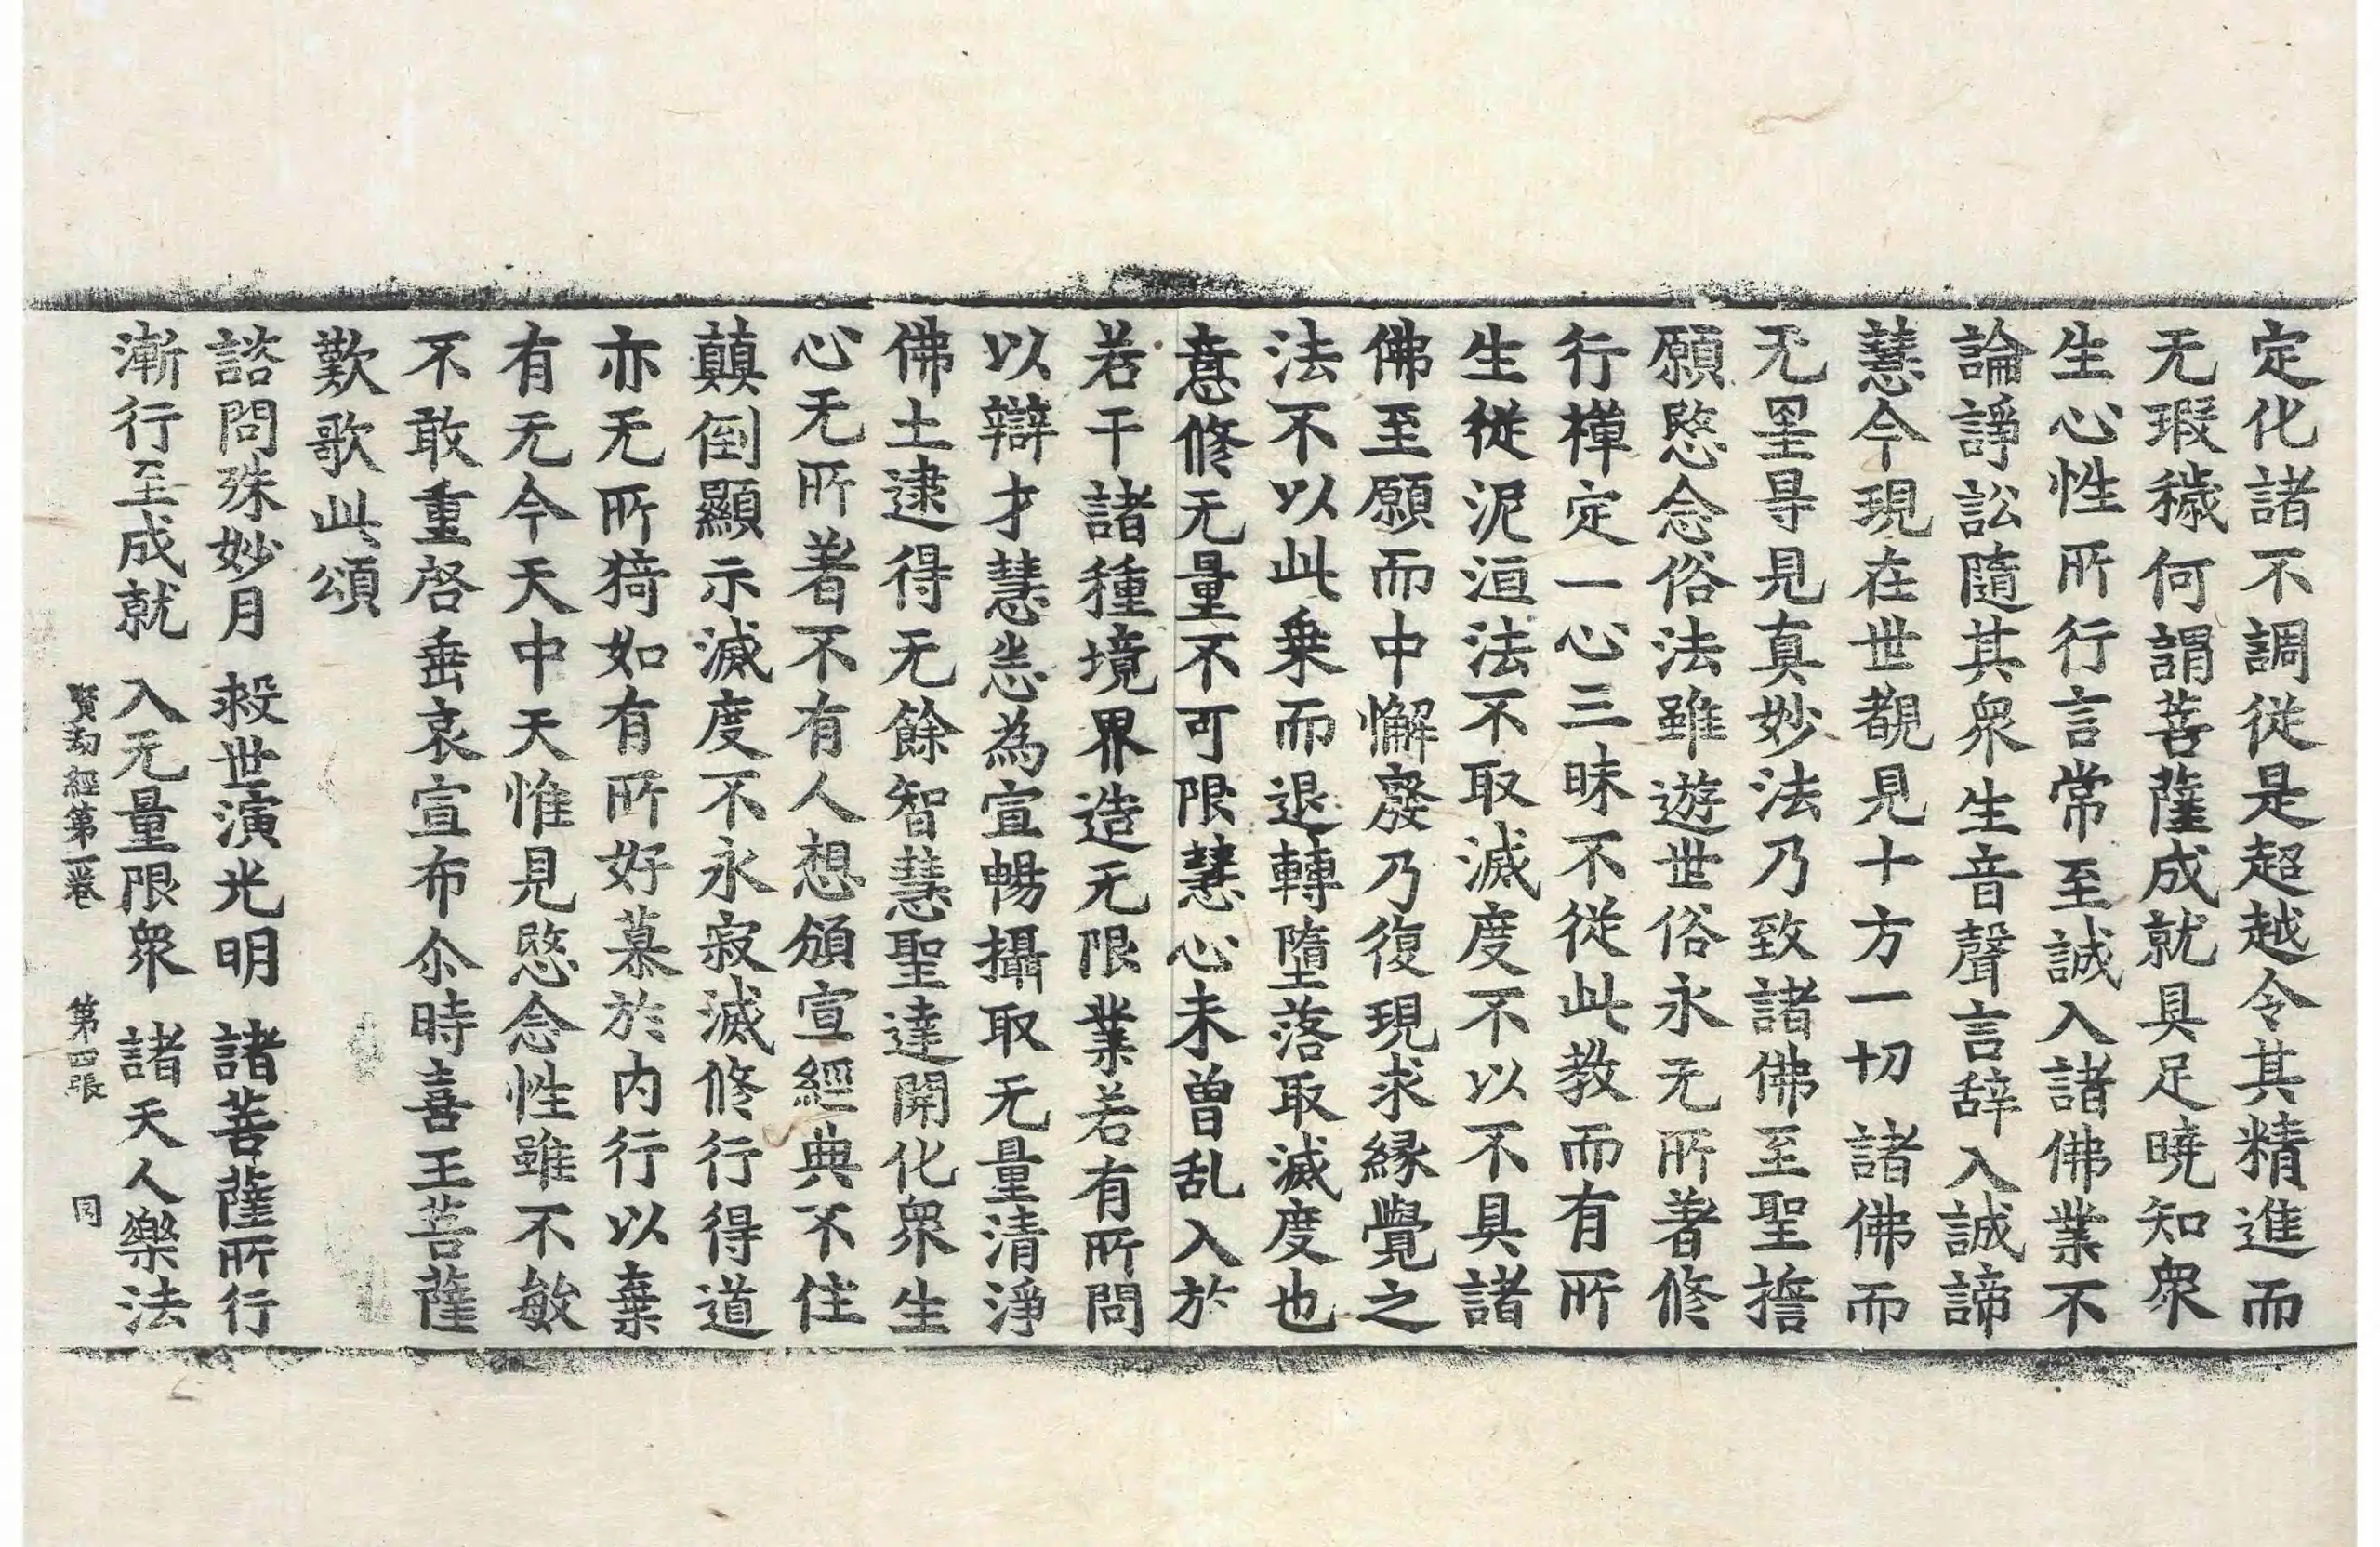 定化諸不調從是超越令其精進而
无瑕穢何謂菩薩成就具足曉知衆
生心性所行行言常至誠入諸佛業不
論諍訟隨其衆生音聲言辝入誠諦
慧今現在世覩見十方一切諸佛而
无罣㝵見真妙法乃致諸佛至聖擔
願愍念俗法雖遊世俗永无所著修
行禪定一心三昧不從此教而有所
生從泥洹法不取滅度不以不具諸
佛至願而中懈癈乃復現求縁覺之
法不以此乗而退轉墮落取滅度也
意修无量不可限慧心未曽乱入於
若干諸種境界造无限業若有所問
以辯才慧恣為宣暢攝取无量清淨
佛土逮得无餘智慧聖達開化衆生
心无所著不有人想頒宣經典不住
顛倒顯示滅度不永寂滅修行得道
亦无所猗如有所好慕於内行以棄
有无今天中天惟見愍念性雖不敏
不敢重啓垂哀宣布尒時喜王菩薩
歎歌此頌
諮問殊妙月　救世演光明　諸菩薩所行
漸行至成就　入无量限衆　諸天人樂法
賢劫經第一卷　第四張　同